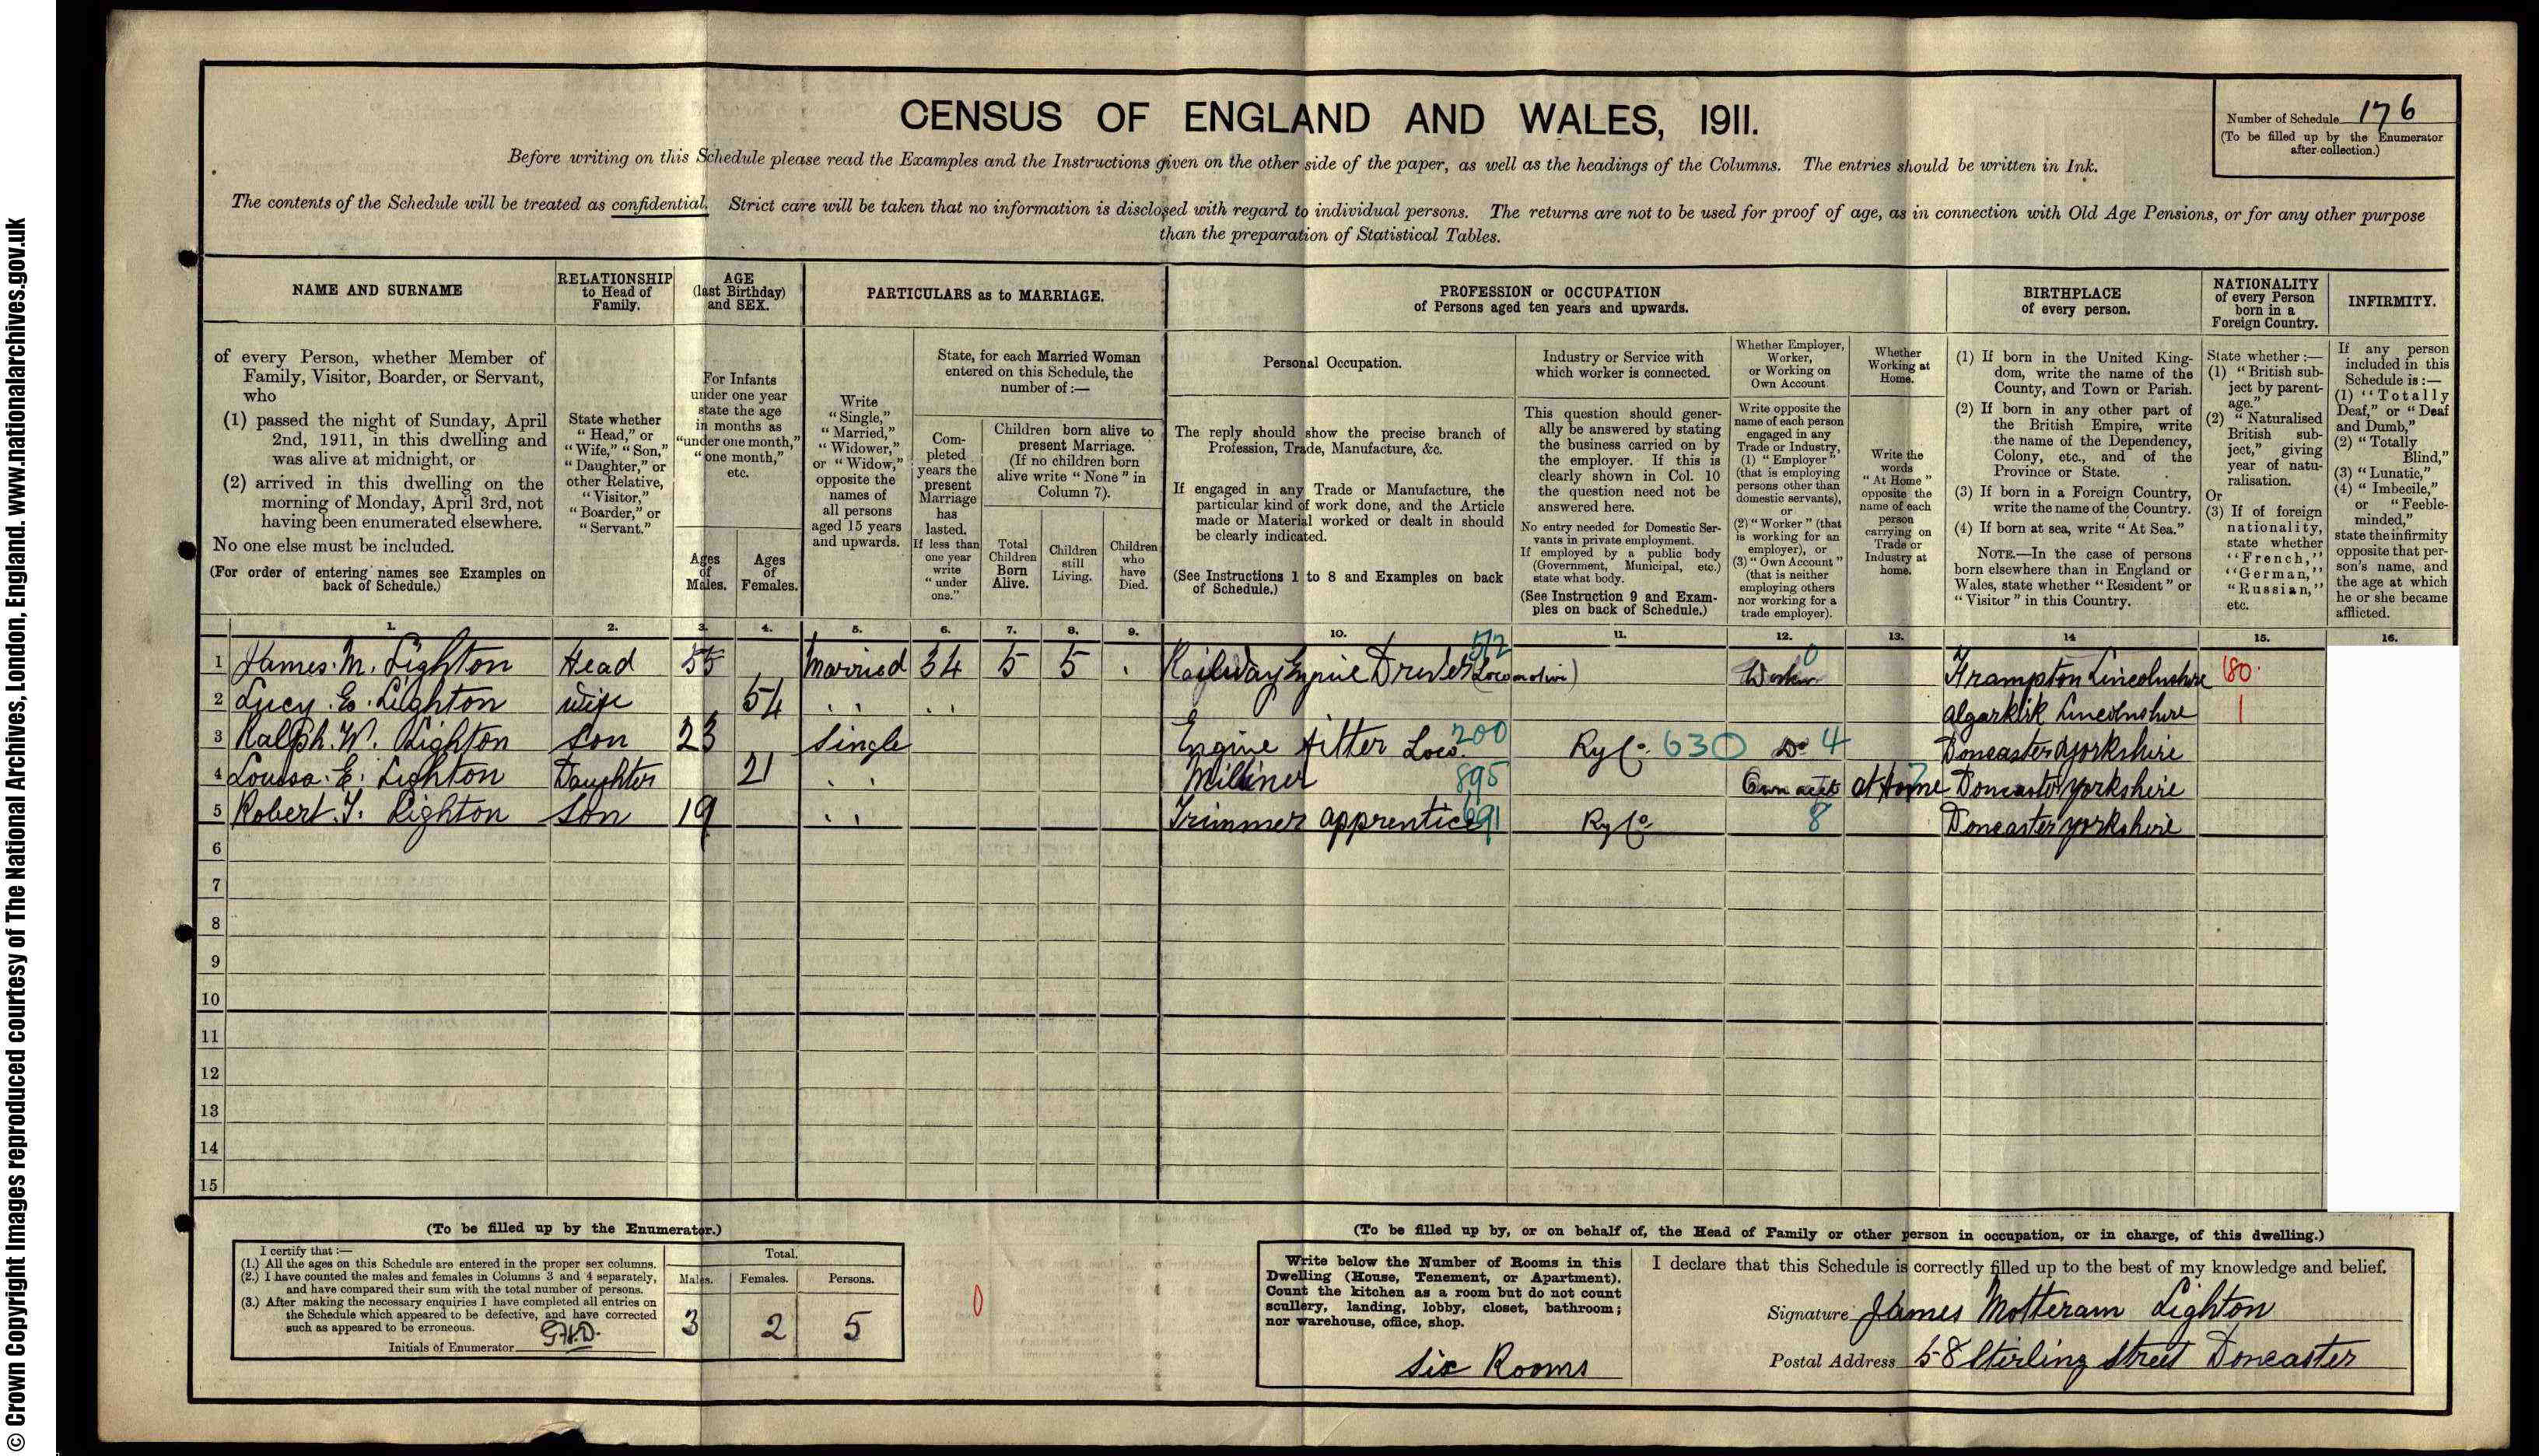 © Crown Copyright Images reproduced courtesy of The National Archives, London, England. www.nationalarchives.gov.uk
CENSUS OF ENGLAND AND WALES, 1911.
Number of Schedule 176
(To be filled up by the Enumerator
after collection.)
Before writing on this Schedule please read the Examples and the Instructions given on the other side of the paper, as well as the headings of the Columns. The entries should be written in Ink.
The contents of the Schedule will be treated as confidential. Strict care will be taken that no information is disclosed with regard to individual persons. The returns are not to be used for proof of age, as in connection with Old Age Pensions, or for any other purpose
than the preparation of Statistical Tables.
NAME AND SURNAME
of every Person, whether Member of
Family, Visitor, Boarder, or Servant,
who
(1) passed the night of Sunday, April
2nd, 1911, in this dwelling and
was alive at midnight, or
(2) arrived in this dwelling on the
morning of Monday, April 3rd, not
having been enumerated elsewhere.
No one else must be included.
(For order of entering names see Examples on
back of Schedule.)
RELATIONSHIP
to Head of
Family.
State whether
“Head,” or
“Wife,” “Son,”
“Daughter,” or
other Relative,
“Visitor,”
“Boarder,” or
“Servant.”
AGE
(last Birthday)
and SEX.
For Infants
under one year
state the age
in months as
“under one month,”
“one month,”
etc.
Ages
of
Males.
Ages
of
Females.
PARTICULARS as to MARRIAGE.
Write
“Single,”
“Married,”
“Widower,”
or “Widow,”
opposite the
names of
all persons
aged 15 years
and upwards.
State, for each Married Woman
entered on this Schedule, the
number of:—
Com-
pleted
years the
present
Marriage
has
lasted.
If less than
one year
write
“under
one.”
Children born alive to
present Marriage.
(If no children born
alive write “None” in
Column 7).
Total
Children
Born
Alive.
Children
still
Living.
Children
who
have
Died.
PROFESSION or OCCUPATION
of Persons aged ten years and upwards.
Personal Occupation.
The reply should show the precise branch of
Profession, Trade, Manufacture, &c.
If engaged in any Trade or Manufacture, the
particular kind of work done, and the Article
made or Material worked or dealt in should
be clearly indicated.
(See Instructions 1 to 8 and Examples on back
of Schedule.)
Industry or Service with
which worker is connected.
This question should gener-
ally be answered by stating
the business carried on by
the employer. If this is
clearly shown in Col. 10
the question need not be
answered here.
No entry needed for Domestic Ser-
vants in private employment.
If employed by a public body
(Government, Municipal, etc.)
state what body.
(See Instruction 9 and Exam-
ples on back of Schedule.)
Whether Employer,
Worker,
or Working on
Own Account.
Write opposite the
name of each person
engaged in any
Trade or Industry,
(1) “Employer”
(that is employing
persons other than
domestic servants),
or
(2) “Worker” (that
is working for an
employer), or
(3) “Own Account”
(that is neither
employing others
nor working for a
trade employer).
Whether
Working at
Home.
Write the
words
“At Home”
opposite the
name of each
person
carrying on
Trade or
Industry at
home.
BIRTHPLACE
of every person.
(1) If born in the United King-
dom, write the name of the
County, and Town or Parish.
(2) If born in any other part of
the British Empire, write
the name of the Dependency,
Colony, etc., and of the
Province or State.
(3) If born in a Foreign Country,
write the name of the Country.
(4) If born at sea, write “At Sea.”
NOTE.—In the case of persons
born elsewhere than in England or
Wales, state whether “Resident” or
“Visitor” in this Country.
NATIONALITY
of every Person
born in a
Foreign Country.
State whether :—
(1) “British sub-
ject by parent-
age.”
(2) “Naturalised
British sub-
ject,” giving
year of natu-
ralisation.
Or
(3) If of foreign
nationality,
state whether
“French,”
“German,”
“Russian,”
etc.
INFIRMITY.
If any person
included in this
Schedule is :—
(1) “Totally
Deaf,” or “Deaf
and Dumb,”
(2) “Totally
Blind,”
(3) “Lunatic,”
(4) “Imbecile,”
or “Feeble-
minded,”
state the infirmity
opposite that per-
son's name, and
the age at which
he or she became
afflicted.
1. 2. 3. 4. 5. 6. 7. 8. 9. 10. 11. 12. 13. 14 15. 16.
1 James. M. Lighton Head 55 Married 34 5 5 Railway Engine Driver (Locomotive) 512 Worker 0 Frampton Lincolnshire 180
2 Lucy. E. Lighton wife 54 " " Algarkirk Lincolnshire 1
3 Ralph. W. Lighton Son 23 Single Engine Fitter Loco. 200 Ry Co. 630 Do 4 Doncaster Yorkshire
4 Louisa. E. Lighton Daughter 21 " Milliner 895 Own acct At Home Doncaster Yorkshire
5 Robert. T. Lighton Son 19 " Trimmer apprentice 691 Ry Co 8 Doncaster Yorkshire
6
7
8
9
10
11
12
13
14
15
(To be filled up by the Enumerator.)
I certify that :—
(1.) All the ages on this Schedule are entered in the proper sex columns.
(2.) I have counted the males and females in Columns 3 and 4 separately,
and have compared their sum with the total number of persons.
(3.) After making the necessary enquiries I have completed all entries on
the Schedule which appeared to be defective, and have corrected
such as appeared to be erroneous.
Initials of Enumerator G.H.D.
Total.
Males. Females. Persons.
3 2 5
0
(To be filled up by, or on behalf of, the Head of Family or other person in occupation, or in charge, of this dwelling.)
Write below the Number of Rooms in this
Dwelling (House, Tenement, or Apartment).
Count the kitchen as a room but do not count
scullery, landing, lobby, closet, bathroom;
nor warehouse, office, shop.
Six Rooms
I declare that this Schedule is correctly filled up to the best of my knowledge and belief.
Signature James Motteram Lighton
Postal Address 58 Stirling Street Doncaster